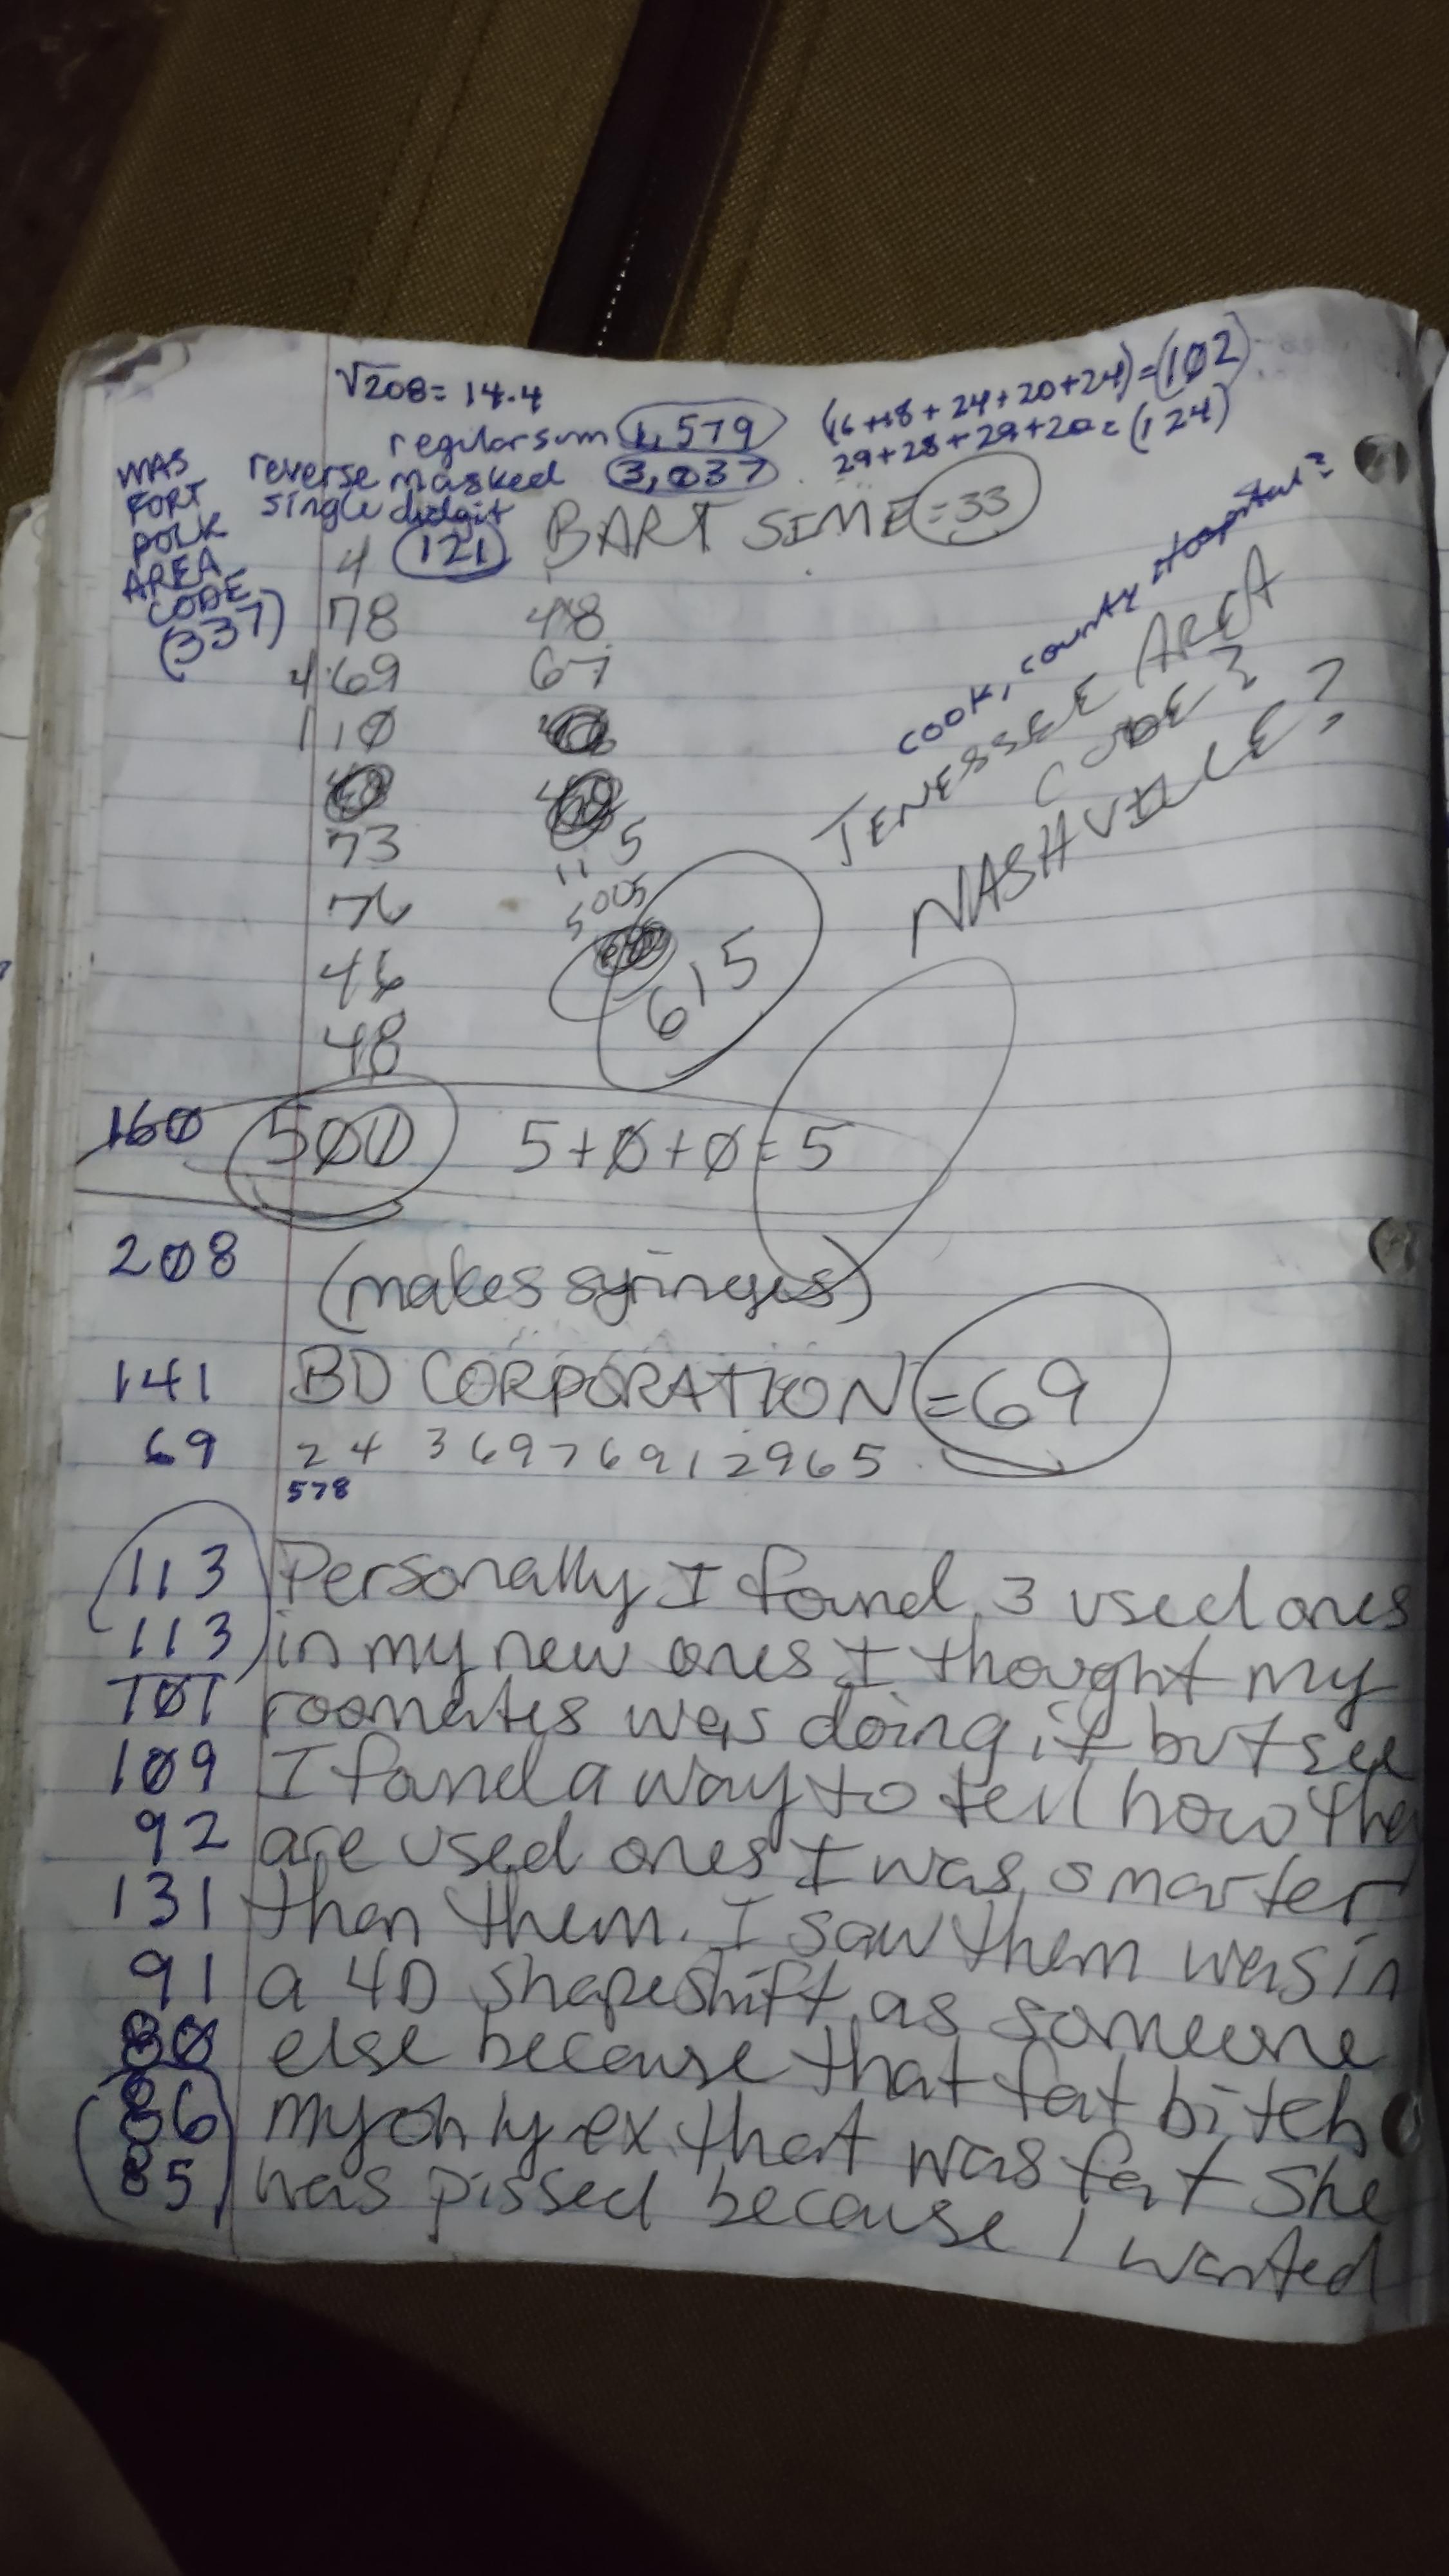 √208 = 14.4
(16+18+24+20+24)=(102)
regular sum 1,579
29+28+29+20=(124)
reverse masked 3,037
single didgit
121
WAS
FORT
POLK
AREA
CODE
(337)
BART SIME =33
cook, county Hospital?
TENESSEE AREA
CODE?
NASHVILLE?
4
78 48
4 69 67
110
73 115
76 5005
46 615
48
160 500 5+0+0=5
208 (makes syringes)
141 BD CORPORATION =69
69 2 4 3 6 9 7 6 9 1 2 9 6 5
578
113 Personally I found 3 used ones
113 in my new ones I thought my
101 roomates was doing it but see
109 I found a way to tell how the
92 are used ones I was smarter
131 than them. I saw them was in
91 a 4D shapeshift as someone
80 else because that fat bitch
86 my only ex that was fat she
85 was pissed because I wanted